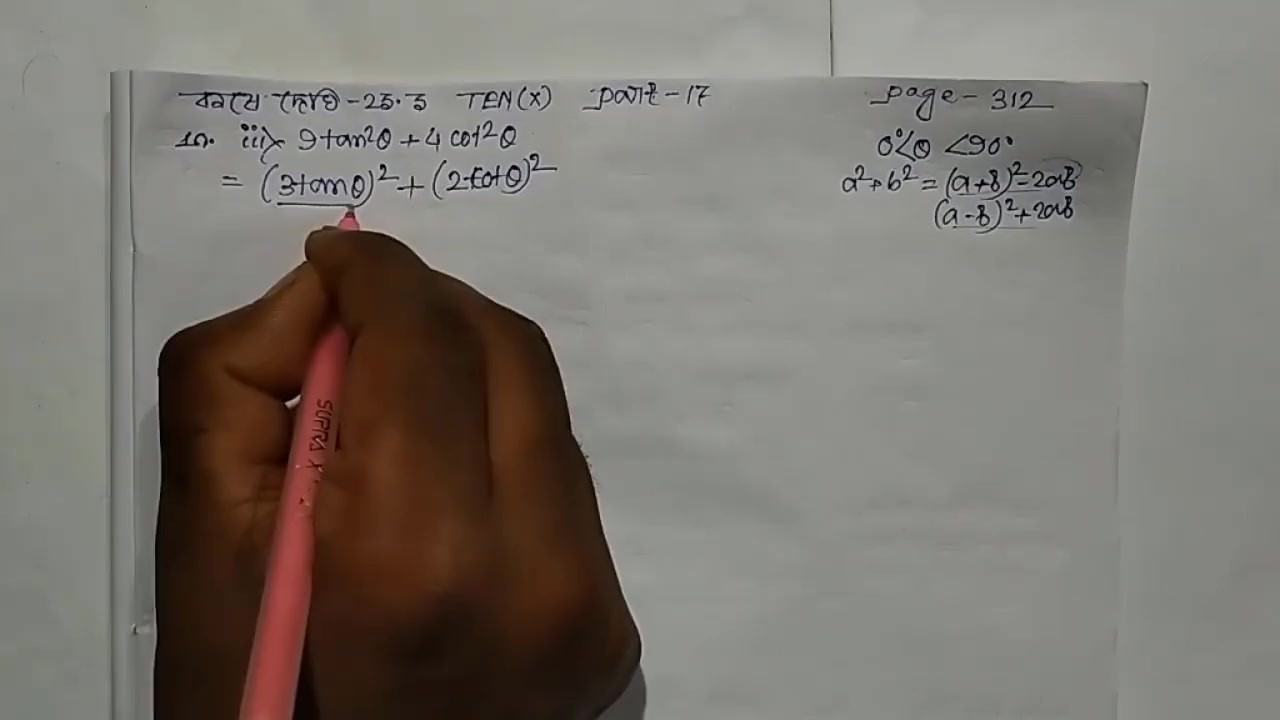 কষে দেখি - 23.3 TEN (X) part - 17
Page - 312
10. iii> 9 tan²θ + 4 cot²θ
0° < θ < 90°
= (3 tan θ)² + (2 cot θ)²
a² + b² = (a + b)² - 2ab
(a - b)² + 2ab
SUPRA X